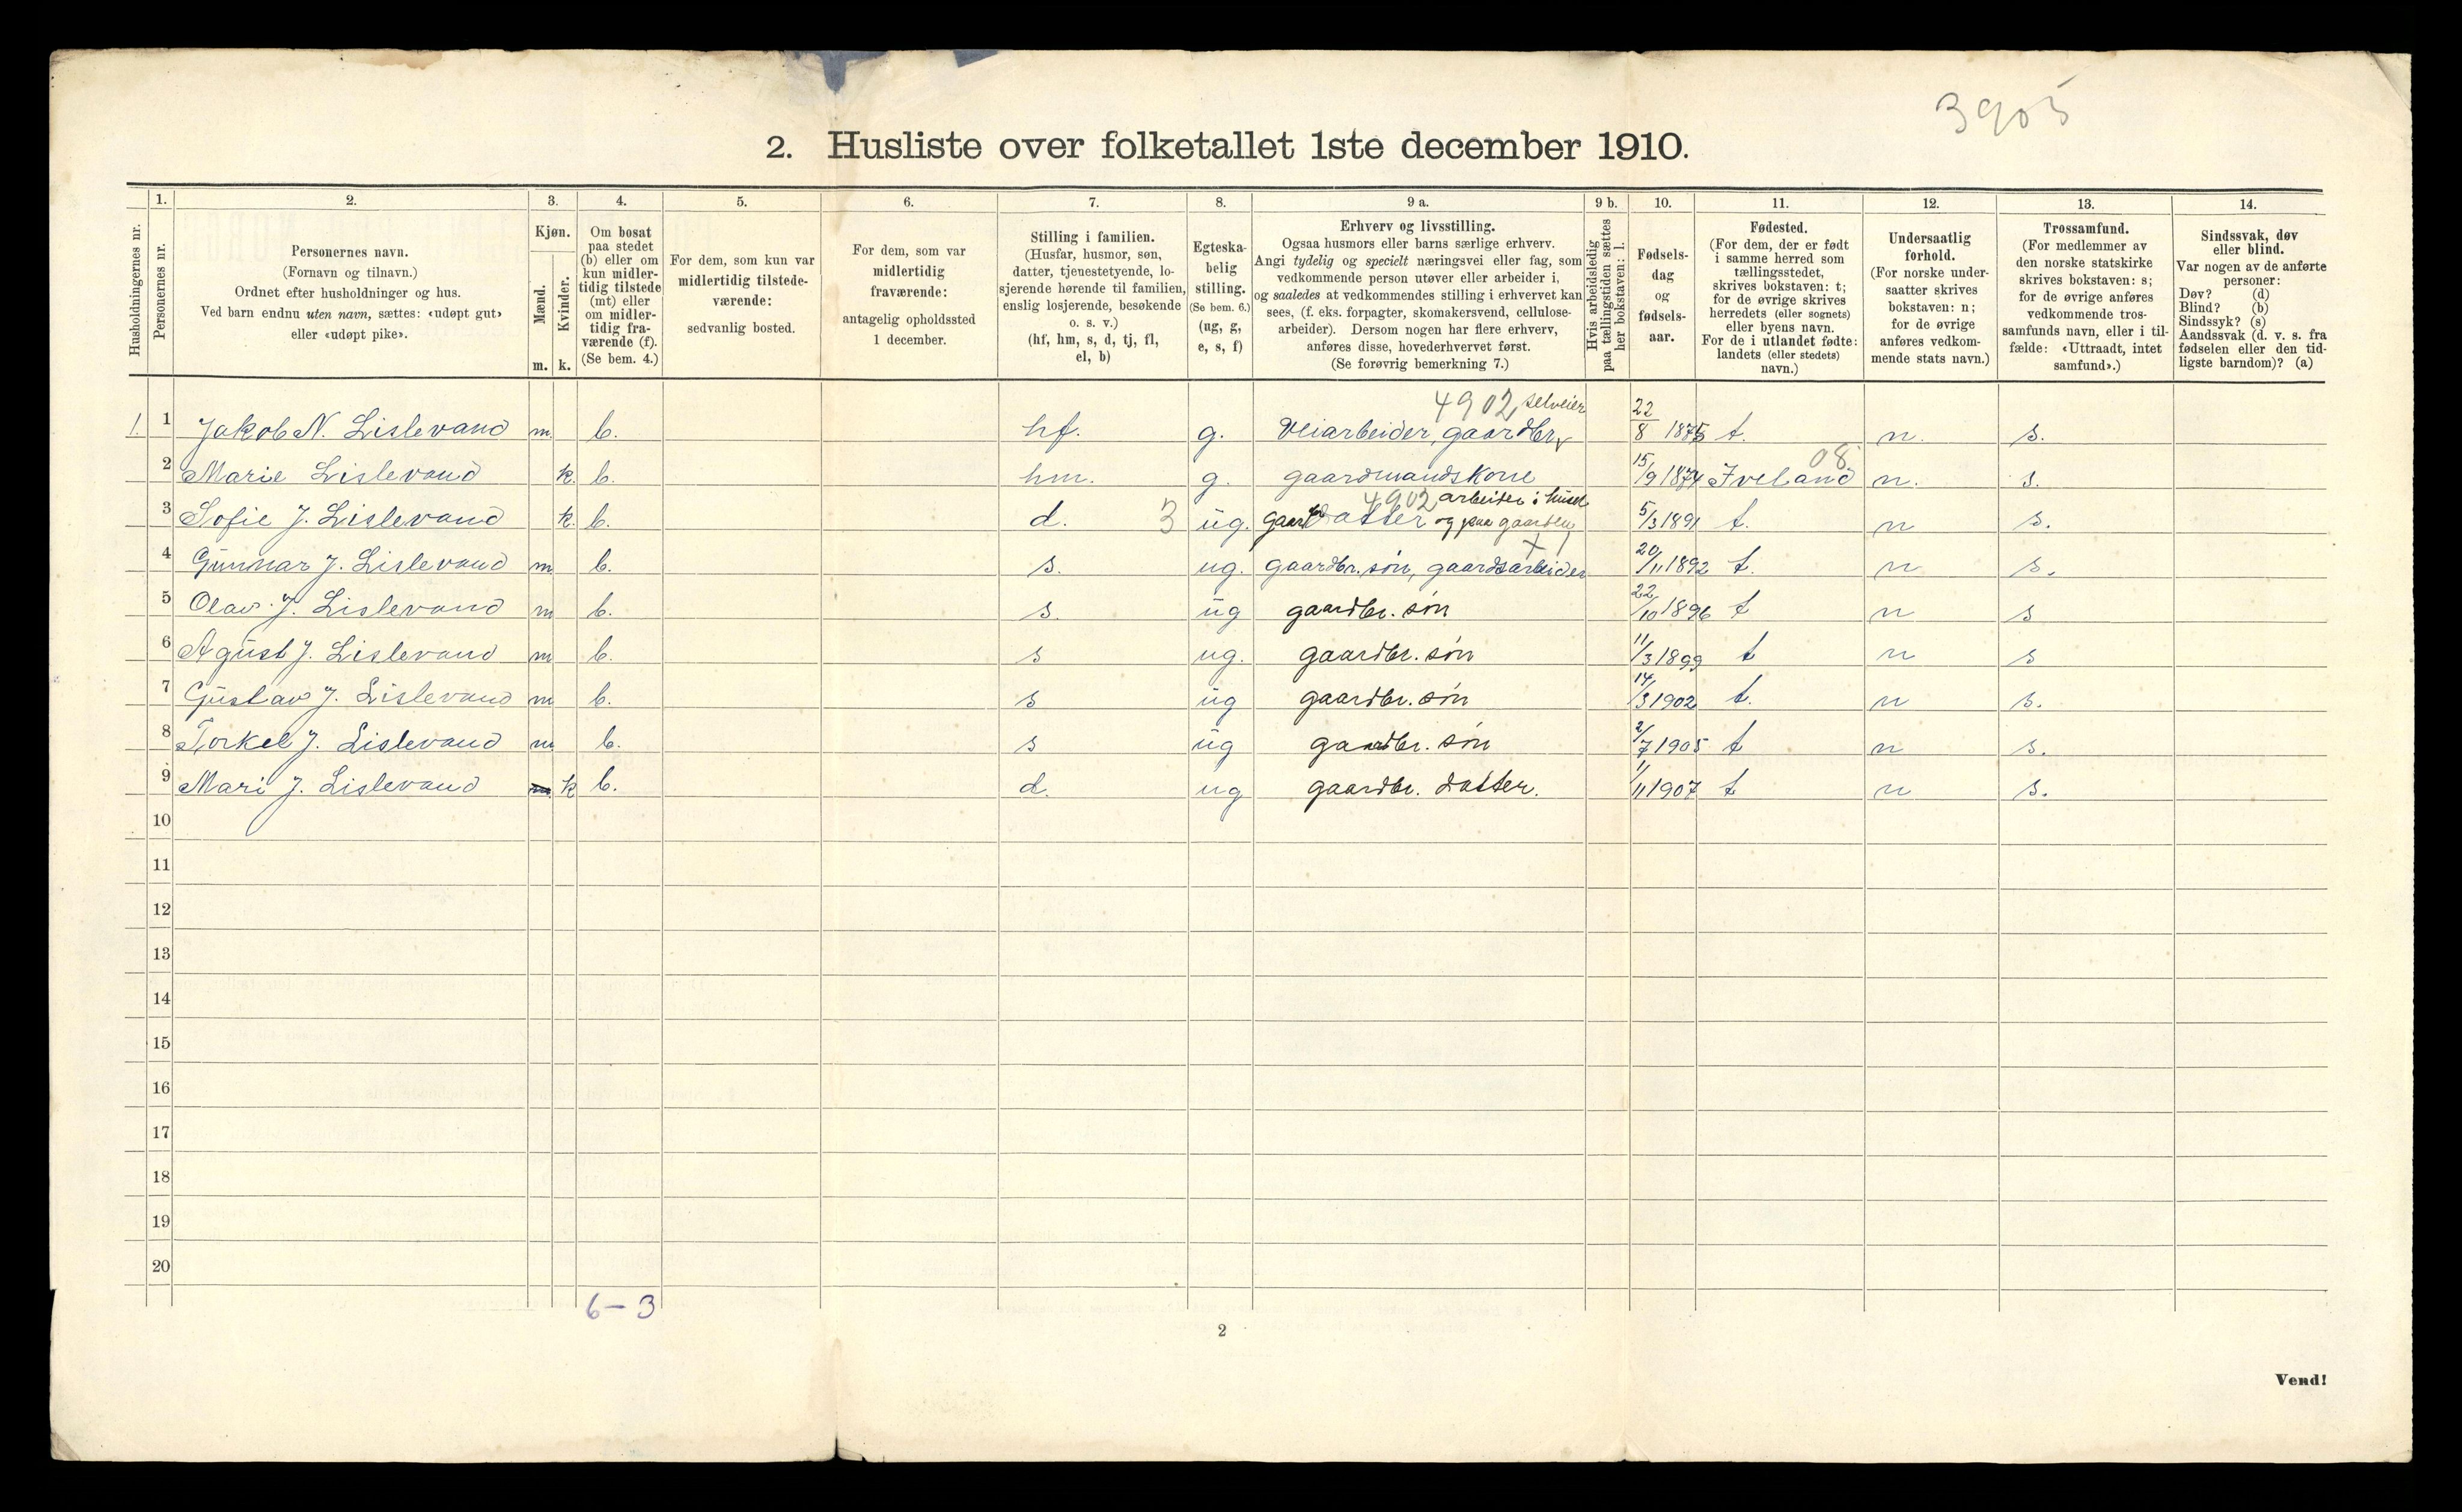 3905
2. Husliste over folketallet 1ste december 1910.
Husholdningernes nr.
1.
Personernes nr.
2.
Personernes navn.
(Fornavn og tilnavn.)
Ordnet efter husholdninger og hus.
Ved barn endnu uten navn, sættes: «udøpt gut»
eller «udøpt pike».
3.
Kjøn.
Mænd.
Kvinder.
m. k.
4.
Om bosat
paa stedet
(b) eller om
kun midler-
tidig tilstede
(mt) eller
om midler-
tidig fra-
værende (f).
(Se bem. 4.)
5.
For dem, som kun var
midlertidig tilstede-
værende:
sedvanlig bosted.
6.
For dem, som var
midlertidig
fraværende:
antagelig opholdssted
1 december.
7.
Stilling i familien.
(Husfar, husmor, søn,
datter, tjenestetyende, lo-
sjerende hørende til familien,
enslig losjerende, besøkende
o. s. v.)
(hf, hm, s, d, tj, fl,
el, b)
8.
Egteska-
belig
stilling.
(Se bem. 6.)
(ug, g,
e, s, f)
9 a.
Erhverv og livsstilling.
Ogsaa husmors eller barns særlige erhverv.
Angi tydelig og specielt næringsvei eller fag, som
vedkommende person utøver eller arbeider i,
og saaledes at vedkommendes stilling i erhvervet kan
sees, (f. eks. forpagter, skomakersvend, cellulose-
arbeider). Dersom nogen har flere erhverv,
anføres disse, hovederhvervet først.
(Se forøvrig bemerkning 7.)
9 b.
Hvis arbeidsledig
paa tællingstiden sættes
her bokstaven: l.
10.
Fødsels-
dag
og
fødsels-
aar.
11.
Fødested.
(For dem, der er født
i samme herred som
tællingsstedet,
skrives bokstaven: t;
for de øvrige skrives
herredets (eller sognets)
eller byens navn.
For de i utlandet fødte:
landets (eller stedets)
navn.)
12.
Undersaatlig
forhold.
(For norske under-
saatter skrives
bokstaven: n;
for de øvrige
anføres vedkom-
mende stats navn.)
13.
Trossamfund.
(For medlemmer av
den norske statskirke
skrives bokstaven: s;
for de øvrige anføres
vedkommende tros-
samfunds navn, eller i til-
fælde: «Uttraadt, intet
samfund».)
14.
Sindssvak, døv
eller blind.
Var nogen av de anførte
personer:
Døv? (d)
Blind? (b)
Sindssyk? (s)
Aandssvak (d. v. s. fra
fødselen eller den tid-
ligste barndom)? (a)
4902 selveier
1. 1 Jakob N. Lislevand m. b. hf. g. Veiarbeider, gaardbr. 22/8 1875 t. n. s.
08
2 Marie Lislevand k. b. hm. g. gaardmandskone 15/9 1874 Iveland n. s.
4902 arbeider i huset
3 Sofie J. Lislevand k. b. d. 3 ug. gaardbr datter og paa gaarden 5/3 1891 t. n s.
4 Gunnar J. Lislevand m b. s. ug. gaardbr. søn, gaardsarbeider 20/11 1892 t. n s.
5 Olav J. Lislevand m b. s. ug gaardbr. søn 22/10 1896 t n s
6 Agust J. Lislevand m b. s ug. gaardbr. søn 11/3 1899 t n s
7 Gustav J. Lislevand m b. s ug gaardbr. søn 14/3 1902 t. n s.
8 Torkel J. Lislevand m. b. s ug gaardbr. søn 2/7 1905 t n s.
9 Mari J. Lislevand m k b. d. ug gaardbr. datter. 1/11 1907 t n s.
10
11
12
13
14
15
16
17
18
19
20
6-3
2
Vend!